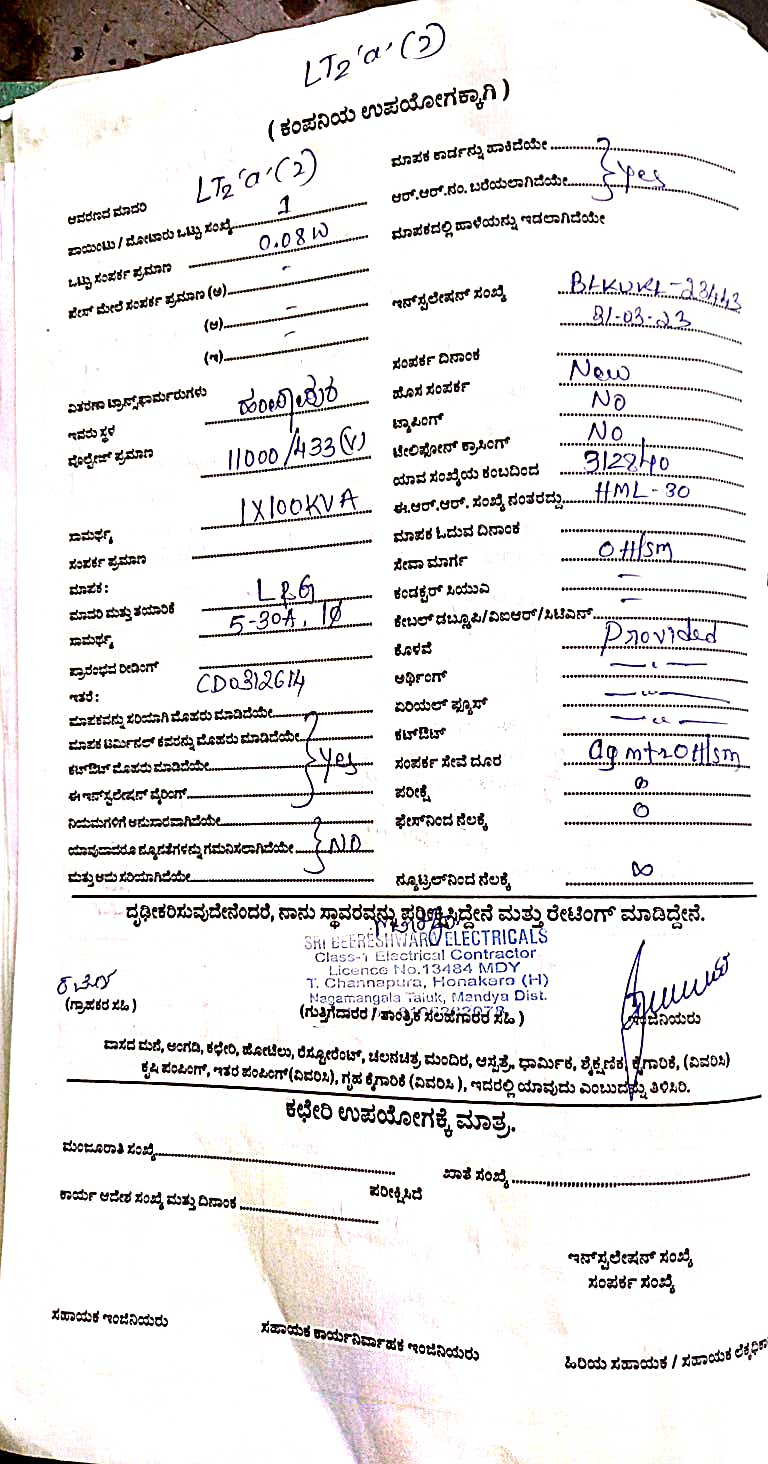 LT2 'a' (2)
( ಕಂಪನಿಯ ಉಪಯೋಗಕ್ಕಾಗಿ )
ಆವರಣದ ಮಾದರಿ LT2 'a' (2)
ಪಾಯಿಂಟು / ಮೋಟಾರು ಒಟ್ಟು ಸಂಖ್ಯೆ 1
ಒಟ್ಟು ಸಂಪರ್ಕ ಪ್ರಮಾಣ 0.08 W
ಫೇಸ್ ಮೇಲೆ ಸಂಪರ್ಕ ಪ್ರಮಾಣ (ಅ) -
(ಆ) -
(ಇ) -
ವಿತರಣಾ ಟ್ರಾನ್ಸ್‌ಫಾರ್ಮರುಗಳು
ಇವರು ಸ್ಥಳ
ವೋಲ್ಟೇಜ್ ಪ್ರಮಾಣ 11000/433 (V)
ಸಾಮರ್ಥ್ಯ 1X100KVA
ಸಂಪರ್ಕ ಪ್ರಮಾಣ
ಮಾಪಕ :
ಮಾದರಿ ಮತ್ತು ತಯಾರಿಕೆ L&G
ಸಾಮರ್ಥ್ಯ 5-30A, 1Ø
ಪ್ರಾರಂಭದ ರೀಡಿಂಗ್
ಇತರೆ : CD0312614
ಮಾಪಕವನ್ನು ಸರಿಯಾಗಿ ಮೊಹರು ಮಾಡಿದೆಯೇ
ಮಾಪಕ ಟರ್ಮಿನಲ್ ಕವರನ್ನು ಮೊಹರು ಮಾಡಿದೆಯೇ
ಕಟ್‌ಔಟ್ ಮೊಹರು ಮಾಡಿದೆಯೇ } Yes
ಈ ಇನ್‌ಸ್ಟಲೇಷನ್ ವೈರಿಂಗ್
ನಿಯಮಗಳಿಗೆ ಅನುಸಾರವಾಗಿದೆಯೇ
ಯಾವುದಾದರೂ ನ್ಯೂನತೆಗಳನ್ನು ಗಮನಿಸಲಾಗಿದೆಯೇ } NO
ಮತ್ತು ಅದು ಸರಿಯಾಗಿದೆಯೇ
ಮಾಪಕ ಕಾರ್ಡನ್ನು ಹಾಕಿದೆಯೇ
ಆರ್.ಆರ್.ನಂ. ಬರೆಯಲಾಗಿದೆಯೇ } Yes
ಮಾಪಕದಲ್ಲಿ ಹಾಳೆಯನ್ನು ಇಡಲಾಗಿದೆಯೇ
ಇನ್‌ಸ್ಟಲೇಷನ್ ಸಂಖ್ಯೆ
-03-23
ಸಂಪರ್ಕ ದಿನಾಂಕ
ಹೊಸ ಸಂಪರ್ಕ New
ಟ್ಯಾಪಿಂಗ್ No
ಟೇಲಿಫೋನ್ ಕ್ರಾಸಿಂಗ್ No
ಯಾವ ಸಂಖ್ಯೆಯ ಕಂಬದಿಂದ 312840
ಈ.ಆರ್.ಆರ್. ಸಂಖ್ಯೆ ನಂತರದ್ದು HML-30
ಮಾಪಕ ಓದುವ ದಿನಾಂಕ
ಸೇವಾ ಮಾರ್ಗ OH/SM
ಕಂಡಕ್ಟರ್ ಸಿಯುಎ -
ಕೇಬಲ್ ಡಬ್ಲೂಪಿ/ವಿಐಆರ್/ಸಿಟಿಎಸ್ -
ಕೊಳವೆ Provided
ಅರ್ಥಿಂಗ್ — " —
ಏರಿಯಲ್ ಫ್ಯೂಸ್ — " —
ಕಟ್‌ಔಟ್ — " —
ಸಂಪರ್ಕ ಸೇವೆ ದೂರ OH/SM
ಪರೀಕ್ಷೆ
ಫೇಸ್‌ನಿಂದ ನೆಲಕ್ಕೆ
ನ್ಯೂಟ್ರಲ್‌ನಿಂದ ನೆಲಕ್ಕೆ ∞
ದೃಢೀಕರಿಸುವುದೇನೆಂದರೆ, ನಾನು ಸ್ಥಾವರವನ್ನು ಪರೀಕ್ಷಿಸಿದ್ದೇನೆ ಮತ್ತು ರೇಟಿಂಗ್ ಮಾಡಿದ್ದೇನೆ.
SRI BEERESHWARA ELECTRICALS
Class-1 Electrical Contractor
Licence No.13484 MDY
T. Channapura, Honakere (H)
Nagamangala Taluk, Mandya Dist.
(ಗ್ರಾಹಕರ ಸಹಿ ) (ಗುತ್ತಿಗೆದಾರರ / ತಾಂತ್ರಿಕ ಸಲಹಗಾರರ ಸಹಿ ) ಇಂಜಿನಿಯರು
ವಾಸದ ಮನೆ, ಅಂಗಡಿ, ಕಛೇರಿ, ಹೋಟೆಲು, ರೆಸ್ಟೋರೆಂಟ್, ಚಲನಚಿತ್ರ ಮಂದಿರ, ಆಸ್ಪತ್ರೆ, ಧಾರ್ಮಿಕ, ಶೈಕ್ಷಣಿಕ, ಕೈಗಾರಿಕೆ, (ವಿವರಿಸಿ)
ಕೃಷಿ ಪಂಪಿಂಗ್, ಇತರ ಪಂಪಿಂಗ್ (ವಿವರಿಸಿ), ಗೃಹ ಕೈಗಾರಿಕೆ (ವಿವರಿಸಿ ), ಇದರಲ್ಲಿ ಯಾವುದು ಎಂಬುದನ್ನು ತಿಳಿಸಿರಿ.
ಕಛೇರಿ ಉಪಯೋಗಕ್ಕೆ ಮಾತ್ರ.
ಮಂಜೂರಾತಿ ಸಂಖ್ಯೆ ಖಾತೆ ಸಂಖ್ಯೆ
ಪರೀಕ್ಷಿಸಿದೆ
ಕಾರ್ಯ ಆದೇಶ ಸಂಖ್ಯೆ ಮತ್ತು ದಿನಾಂಕ
ಇನ್‌ಸ್ಟಲೇಷನ್ ಸಂಖ್ಯೆ
ಸಂಪರ್ಕ ಸಂಖ್ಯೆ
ಸಹಾಯಕ ಇಂಜಿನಿಯರು ಸಹಾಯಕ ಕಾರ್ಯನಿರ್ವಾಹಕ ಇಂಜಿನಿಯರು ಹಿರಿಯ ಸಹಾಯಕ / ಸಹಾಯಕ